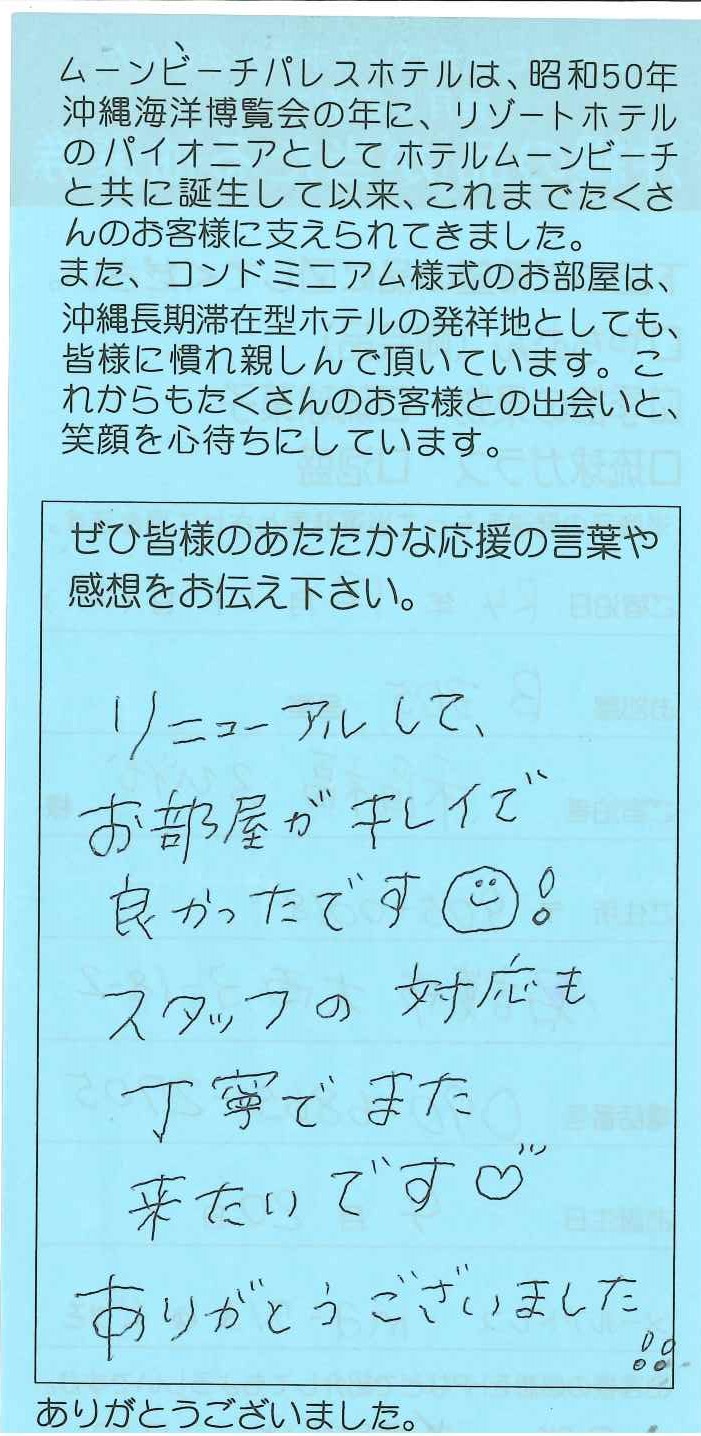 ムーンビーチパレスホテルは、昭和50年
沖縄海洋博覧会の年に、リゾートホテル
のパイオニアとしてホテルムーンビーチ
と共に誕生して以来、これまでたくさ
んのお客様に支えられてきました。
また、コンドミニアム様式のお部屋は、
沖縄長期滞在型ホテルの発祥地としても、
皆様に慣れ親しんで頂いています。こ
れからもたくさんのお客様との出会いと、
笑顔を心待ちにしています。
ぜひ皆様のあたたかな応援の言葉や
感想をお伝え下さい。
リニューアルして、
お部屋がキレイで
良かったです!
スタッフの対応も
丁寧でまた
来たいです♡
ありがとうございました
!!
ありがとうございました。